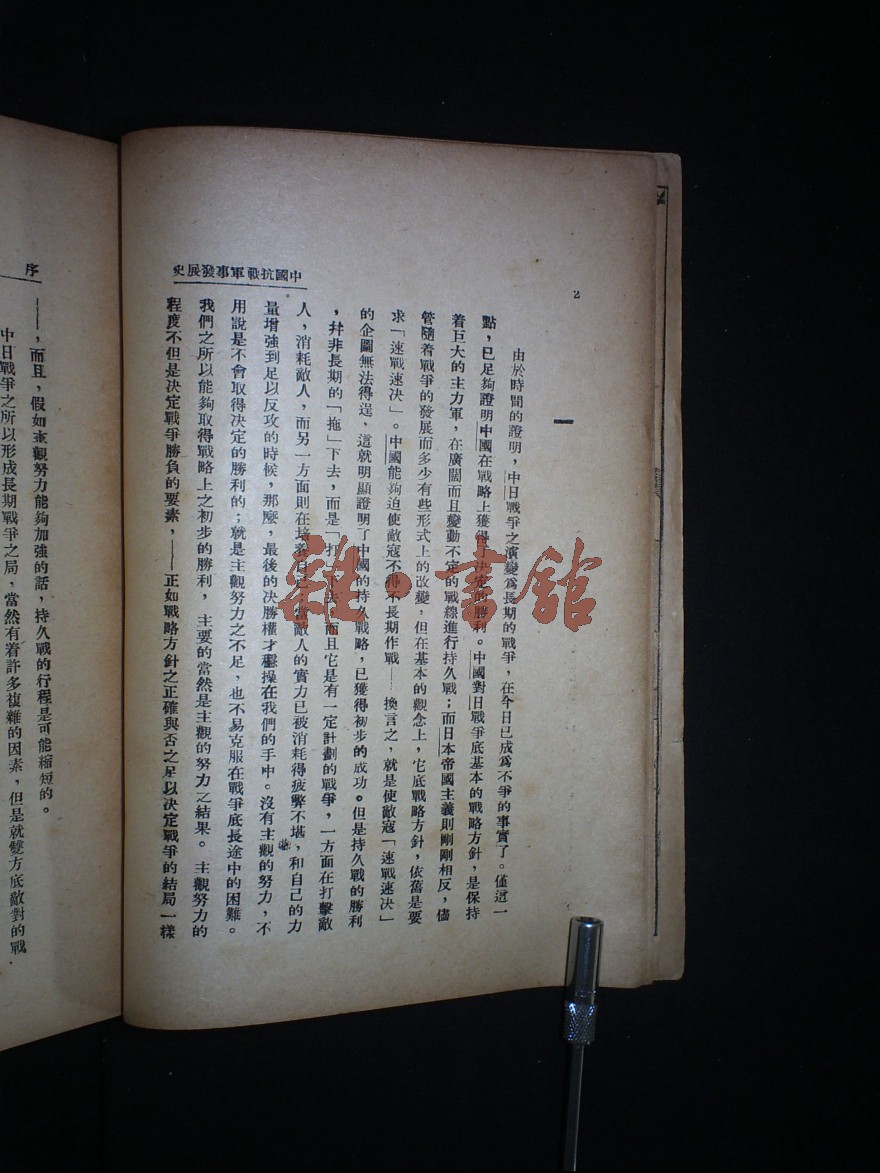 中國抗戰軍事發展史
2
一
由於時間的證明，中日戰爭之演變爲長期的戰爭，在今日已成爲不爭的事實了。僅這一
點，已足夠證明中國在戰略上獲得了決定的勝利。中國對日戰爭底基本的戰略方針，是保持
着巨大的主力軍，在廣闊而且變動不定的戰線進行持久戰；而日本帝國主義則剛剛相反，儘
管隨着戰爭的發展而多少有些形式上的改變，但在基本的觀念上，它底戰略方針，依舊是要
求「速戰速決」。中國能夠迫使敵寇不得不長期作戰——換言之，就是使敵寇「速戰速決」
的企圖無法得逞，這就明顯證明了中國的持久戰略，已獲得初步的成功。但是持久戰的勝利
，幷非長期的「拖」下去，而是「打」下去，而且它是有一定計劃的戰爭，一方面在打擊敵
人，消耗敵人，而另一方面則在培養自己；當敵人的實力已被消耗得疲弊不堪，和自己的力
量增強到足以反攻的時候，那麼，最後的決勝權才操在我們的手中。沒有主觀的努力，不
用說是不會取得決定的勝利的；就是主觀努力之不足，也不易克服在戰爭底長途中的困難。
我們之所以能夠取得戰略上之初步的勝利，主要的當然是主觀的努力之結果。主觀努力的
程度不但是決定戰爭勝負的要素，——正如戰略方針之正確與否之足以決定戰爭的結局一樣
序
——，而且，假如主觀努力能夠加強的話，持久戰的行程是可能縮短的。
中日戰爭之所以形成長期戰爭之局，當然有着許多複雜的因素，但是就雙方底敵對的戰
雜·書館